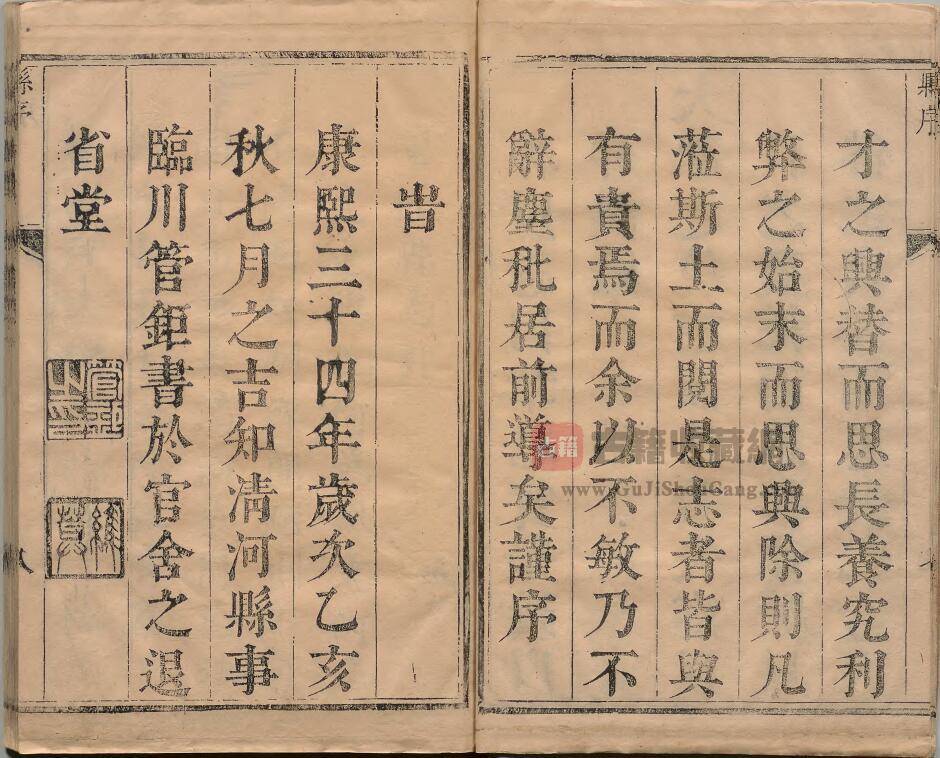 縣序
才之興替而思長養究利
弊之始末而思興除則凡
蒞斯土而閱是志者皆與
有責焉而余以不敏乃不
辭塵秕居前導矣謹序
旹
康熙三十四年歲次乙亥
秋七月之吉知淸河縣事
臨川管鉅書於官舍之退
省堂
縣序
八
古籍
古籍收藏網
www.GuJiShouCang.com